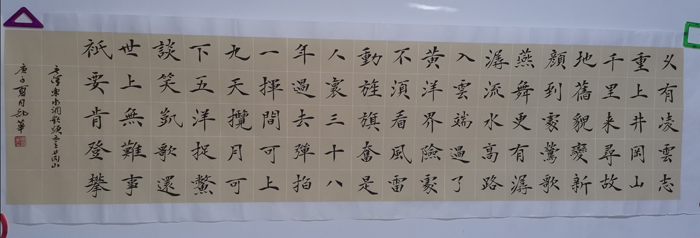 久有凌雲志
重上井岡山
千里来尋故
地舊貌變新
顏到處鶯歌
燕舞更有潺
潺流水高路
入雲端過了
黄洋界險處
不須看風雷
動旌旗奮是
人寰三十八
年過去彈指
一揮間可上
九天攬月可
下五洋捉鱉
談笑凱歌還
世上無難事
衹要肯登攀
毛澤東水調歌頭重上井岡山
庚子夏月華